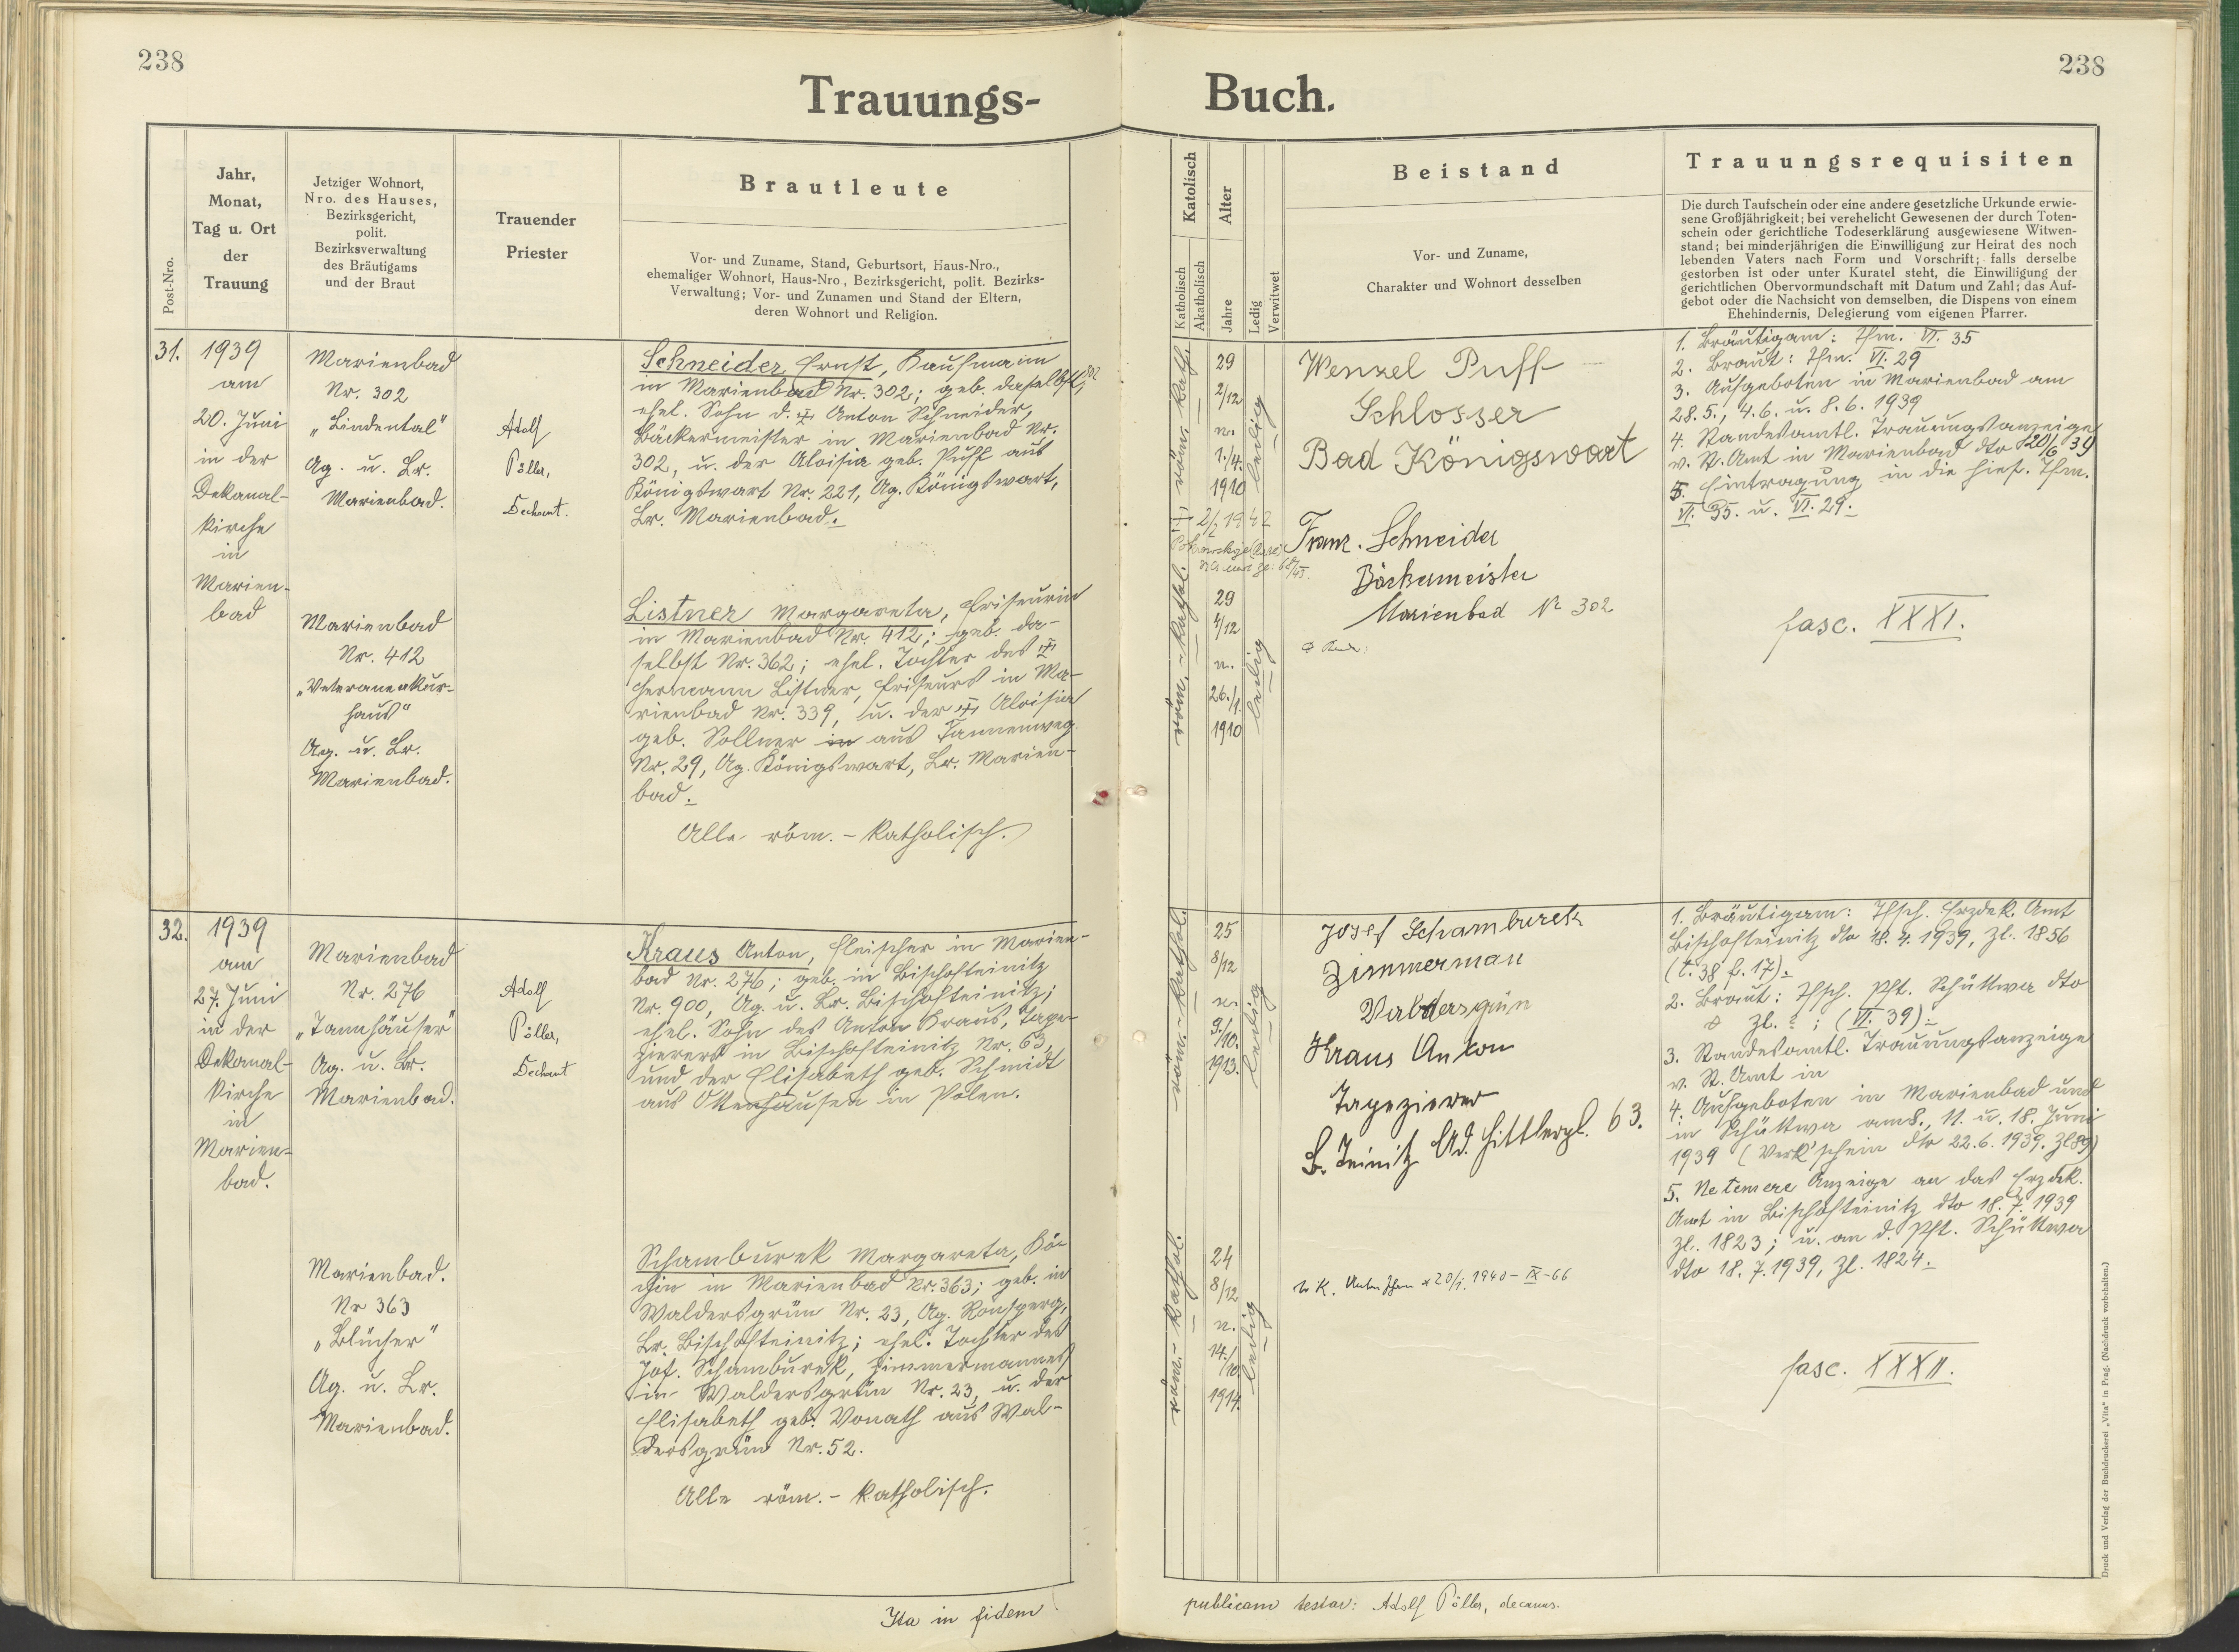 238
238
Trauungs-
Buch.
Post-Nro.
Jahr,
Monat,
Tag u. Ort
der
Trauung
Jetziger Wohnort,
Nro. des Hauses,
Bezirksgericht,
polit.
Bezirksverwaltung
des Bräutigams
und der Braut
Trauender
Priester
Brautleute
Vor- und Zuname, Stand, Geburtsort, Haus-Nro.,
ehemaliger Wohnort, Haus-Nro., Bezirksgericht, polit. Bezirks-
Verwaltung; Vor- und Zunamen und Stand der Eltern,
deren Wohnort und Religion.
Katolisch
Katholisch
Akatholisch
Alter
Jahre
Ledig
Verwitwet
Beistand
Vor- und Zuname,
Charakter und Wohnort desselben
Trauungsrequisiten
Die durch Taufschein oder eine andere gesetzliche Urkunde erwie-
sene Großjährigkeit; bei verehelicht Gewesenen der durch Toten-
schein oder gerichtliche Todeserklärung ausgewiesene Witwen-
stand; bei minderjährigen die Einwilligung zur Heirat des noch
lebenden Vaters nach Form und Vorschrift; falls derselbe
gestorben ist oder unter Kuratel steht, die Einwilligung der
gerichtlichen Obervormundschaft mit Datum und Zahl; das Auf-
gebot oder die Nachsicht von demselben, die Dispens von einem
Ehehindernis, Delegierung vom eigenen Pfarrer.
31.
1939
am
20. Juni
in der
Dekanal-
kirche
in
Marien-
bad
Marienbad
Nr. 302
„Lindental"
Ag. u. Br.
Marienbad.
Adolf
Pöller,
Dechant.
Schneider Ernst, Kaufmann
in Marienbad Nr. 302; geb. daselbst, 302
ehel. Sohn d. Anton Schneider,
Bäckermeister in Marienbad Nr.
302, u. der Aloisia geb. Puff aus
Königswart Nr. 221, Ag. Königswart,
Br. Marienbad.
Marienbad
Nr. 412
„Veteranenkur-
haus"
Ag. u. Br.
Marienbad.
Listner Margareta, Friseurin
in Marienbad Nr. 412; geb. da-
selbst Nr. 362; ehel. Tochter des
Hermann Listner, Friseurs in Ma-
rienbad Nr. 339, u. der Aloisia
geb. Sollner in aus Tannenweg
Nr. 29, Ag. Königswart, Br. Marien-
bad.
Alle röm.-katholisch.
röm.-kathol.
29
2/12
n.
1./4.
1910
ledig
Wenzel Puff
Schlosser
Bad Königswart
Franz Schneider
Bäckermeister
Marienbad Nr 302
röm.-kathol.
29
4/12
n.
26./1.
1910
ledig
1. Bräutigam: Thm. VI. 35
2. Braut: Thm. VI. 29
3. Aufgeboten in Marienbad am
28.5., 4.6. u. 8.6. 1939
4. Standesamtl. Trauungsanzeige
v. St. Amt in Marienbad dto 20/6 39
5. Eintragung in die hies. Thm.
VI. 35. u. VI. 29.
fasc. XXXI.
32.
1939
am
27. Juni
in der
Dekanal-
kirche
in
Marien-
bad.
Marienbad
Nr. 276
„Tannhäuser"
Ag. u. Br.
Marienbad.
Adolf
Pöller,
Dechant
Kraus Anton, Fleischer in Marien-
bad Nr. 276; geb. in Bischofteinitz
Nr. 900, Ag. u. Br. Bischofteinitz;
ehel. Sohn des Anton Kraus, Tape-
zierers in Bischofteinitz Nr. 63,
und der Elisabeth geb. Schmidt
aus Ottenhausen in Polen.
Marienbad.
Nr 363
„Blücher"
Ag. u. Br.
Marienbad.
Schamburek Margareta, Kö-
chin in Marienbad Nr. 363; geb. in
Waldersgrün Nr. 23, Ag. Ronsperg,
Br. Bischofteinitz; ehel. Tochter des
Jos. Schamburek, Zimmermannes
in Waldersgrün Nr. 23, u. der
Elisabeth geb. Vonath aus Wal-
dersgrün Nr. 52.
Alle röm.-katholisch.
röm.-kathol.
25
8/12
n.
9./10.
1913.
ledig
Josef Schamburek
Zimmerman
Waldersgrün
Kraus Anton
Tapezierer
B. Teinitz Ad. Hittlerpl. 63.
röm.-kathol.
24
8/12
n.
14./10.
1914.
ledig
1. Bräutigam: Tfsch. Erzdek. Amt
Bischofteinitz dto 18. 4. 1939, Zl. 1856
(t. 38 f. 17).
2. Braut: Tfsch. Pft. Schüttwa dto
Zl. ; (VI. 39).
3. Standesamtl. Trauungsanzeige
v. St. Amt in
4. Aufgeboten in Marienbad und
in Schüttwa am 8., 11. u. 18. Juni
1939 (Verk'schein dto 22.6.1939. Zl 89)
5. Ne temere Anzeige an das Erzdek.
Amt in Bischofteinitz dto 18. 7. 1939
Zl. 1823; u. an d. Pft. Schüttwa
dto 18. 7. 1939, Zl. 1824.
fasc. XXXII.
Ita in fidem
publicam testor: Adolf Pöller, decanus.
Druck und Verlag der Buchdruckerei „Vita" in Prag. (Nachdruck vorbehalten.)